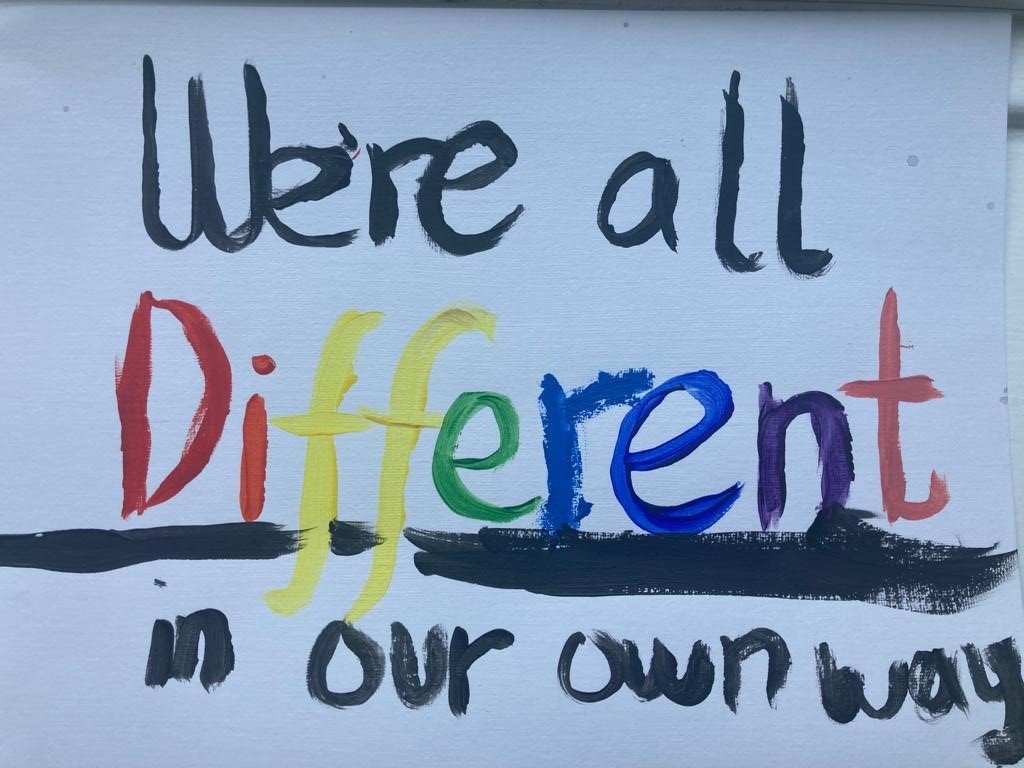 We're all
Different
in our own way